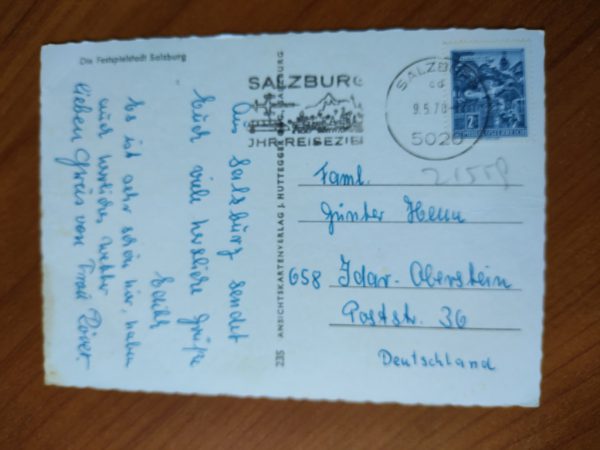 Die Festspielstadt Salzburg
Aus Salzburg sendet
Euch viele herzliche Grüße
Es ist sehr schön hier, haben
auch herrliches Wetter
lieben Gruß von Frau
235 ANSICHTSKARTENVERLAG J. HUTTEGGER SALZBURG
SALZBURG
IHR REISEZIEL
SALZBURG
9.5.70
5020
2
REPUBLIK ÖSTERREICH
Faml.
Günter Henn
658 Idar-Oberstein
Poststr. 36
Deutschland